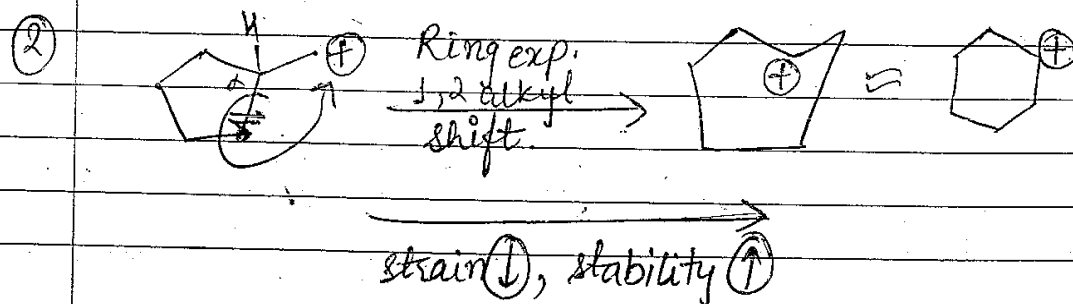 ②
H
⊕
Ring exp.
1,2 alkyl
shift.
⊕
≈
⊕
α
strain ↓, stability ↑